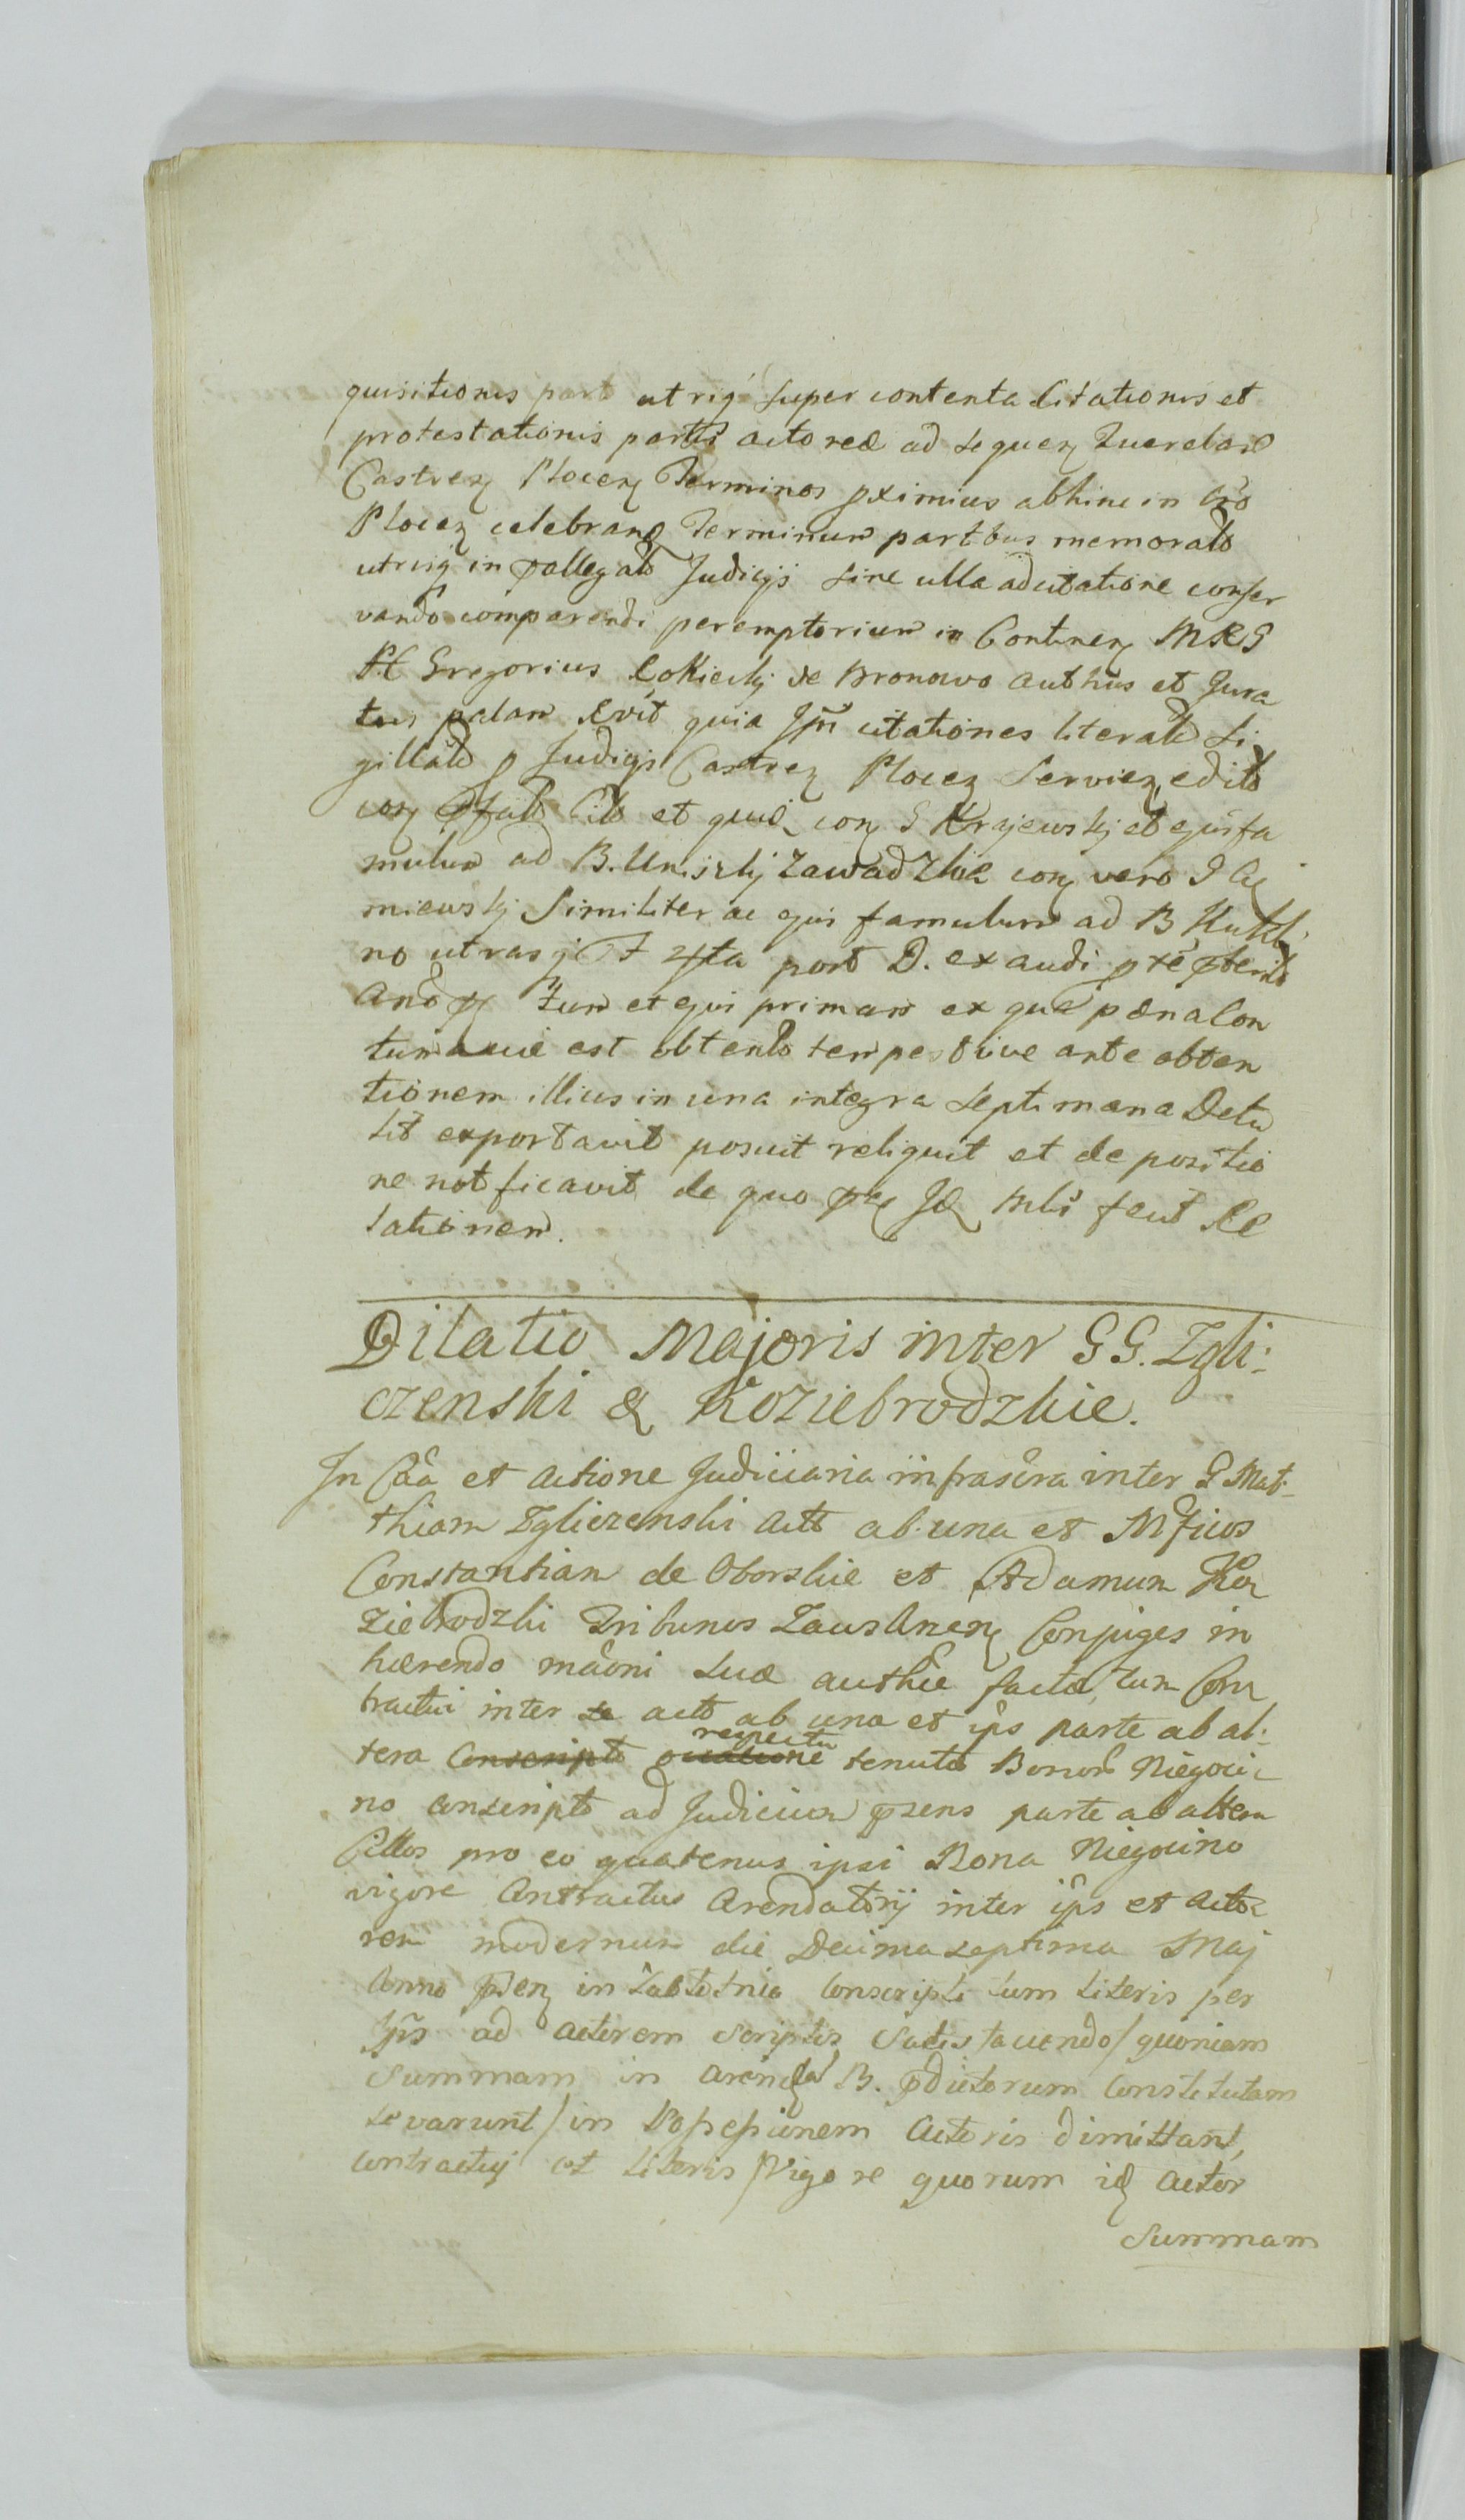 quisitionis part utriq super contenta Citationis et
protestationis partis actoreæ ad sequen Querelarl
Castren Plocen Terminos pximius abhinc in Cro
Plocen celebrand Terminum partibus memorato
utrisq in pallegato Judicijs sine ulla adcitatione conser
vando comparendi peremptorium in Continen MRS
Gregorius Lokicky de Bronowo authus et Jura
tus palam quia citationes literato si
gillato p Judicijs Castren Plocen Servien edito
con et con S Krajewskj et ejus fa
mulum ad B. Uniszkj Zawadzkie con vero
miewskj Similiter ac ejus famulum ad B
no utrasq post D. exaudi
et ejus primam ex qua pæna Con
tumaciæ est obtento tempestive ante obten
tionem illius in una integra septimana Detu
lit exportavit posuit reliquit et de positio
ne notificavit de quo fecit Re
lationem.
Dilatio Majoris inter GG. Zgli:
czenski & Koziebrodzkie.
In Cãa et Actione Judiciaria infrascra inter G Mat-
thiam Zgliczenski Act ab una et Mficos
Constantiam de Oborskie et Adamum Ko
ziebrodzki Tribunos Zauskrnen Conjuges in
hærendo mãoni suæ authce facta, tum Con
tractui inter se act ab una et ips parte ab al:
tera Conscripto respectu tenuta Bonor Niegoci-
no conscripto ad Judicium psens parte ab altera
Cittos pro eo quatenus ipsi Bona Niegocino
vigore Contractus Arendatorij inter ips et Acto-
rem modernum die Decima septima Maj
Anno psen in conscripti tum literis per
Ips ad actorem scriptis satisfaciendo/ quoniam
Summam in arenda B. pdictorum Constitutam
levarunt/ in Possessionem Actoris dimittant,
contractuj et literis /Vigore quorum id Actor
Summam